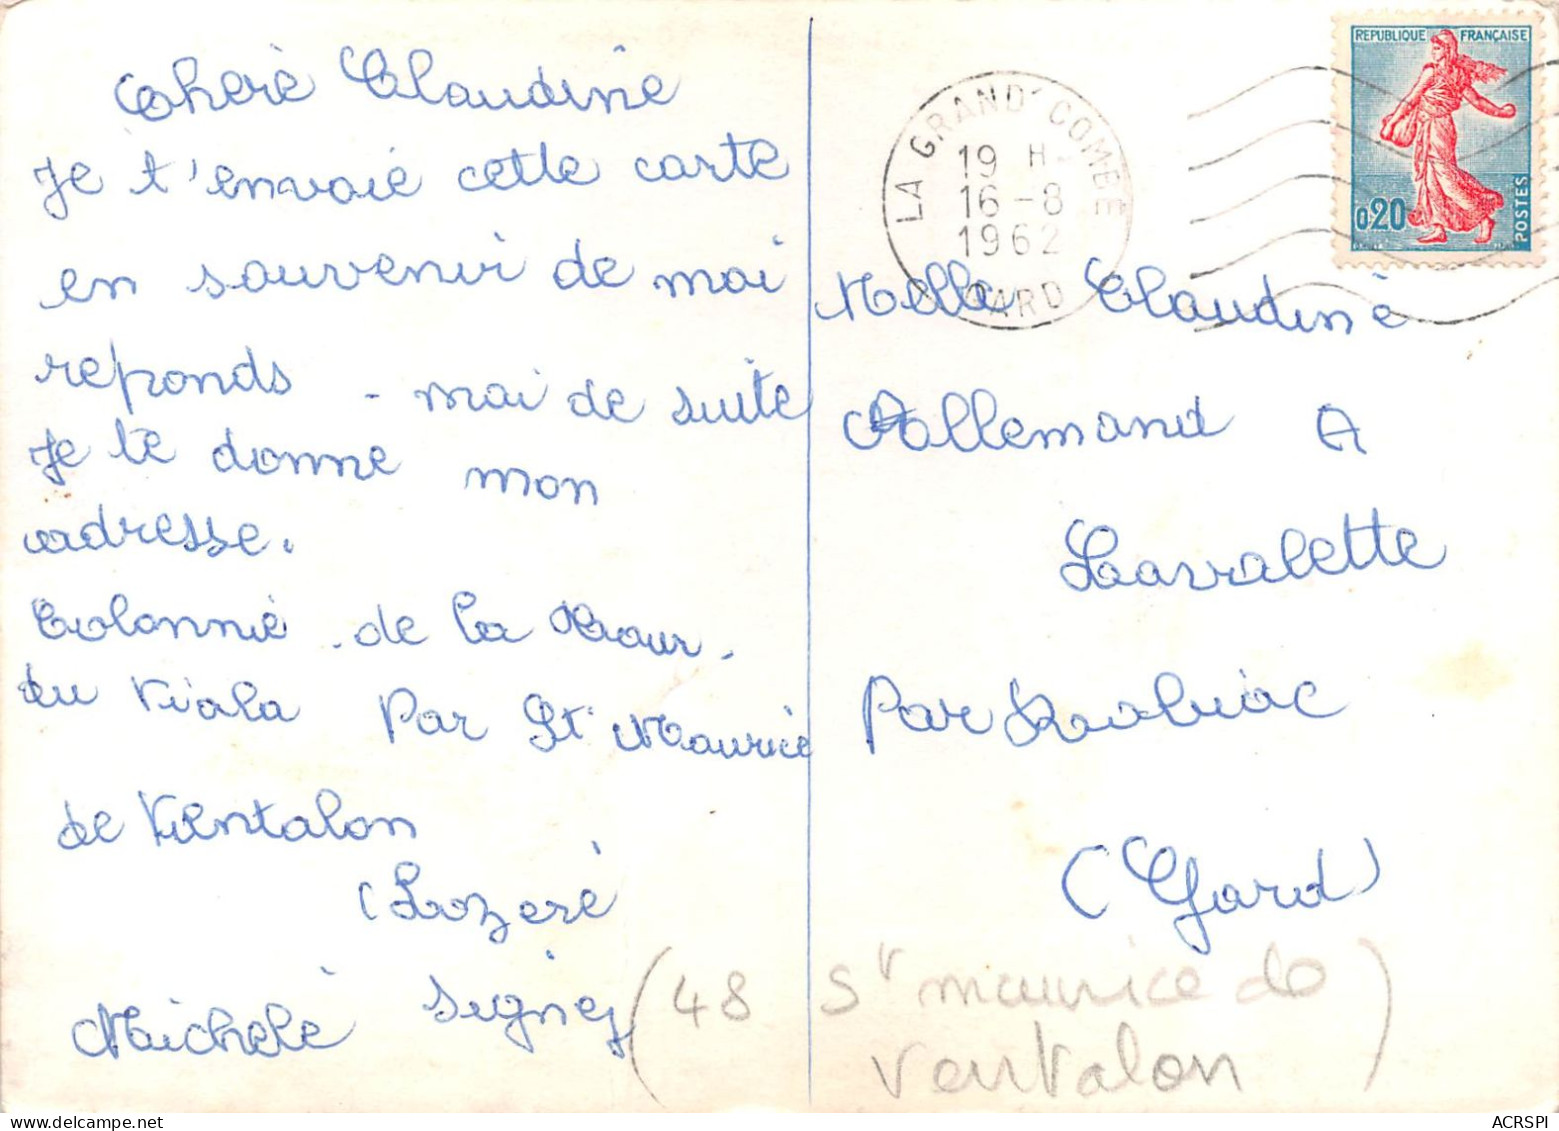 Cherè Claudine
Je t'envoie cette carte
en souvenir de moi
reponds - moi de suite
Je te donne mon
adresse.
Colonnie de la Baour
du Viala Par St Maurice
de Ventalon
(Lozerè
Michele Signez
LA GRAND' COMBE
19 H
16-8
1962
GARD
REPUBLIQUE FRANÇAISE
0,20
POSTES
Melle Claudine
Allemand A
Lavalette
Par Robiac
(Gard)
(48 St maurice de
Ventalon)
ACRSPI